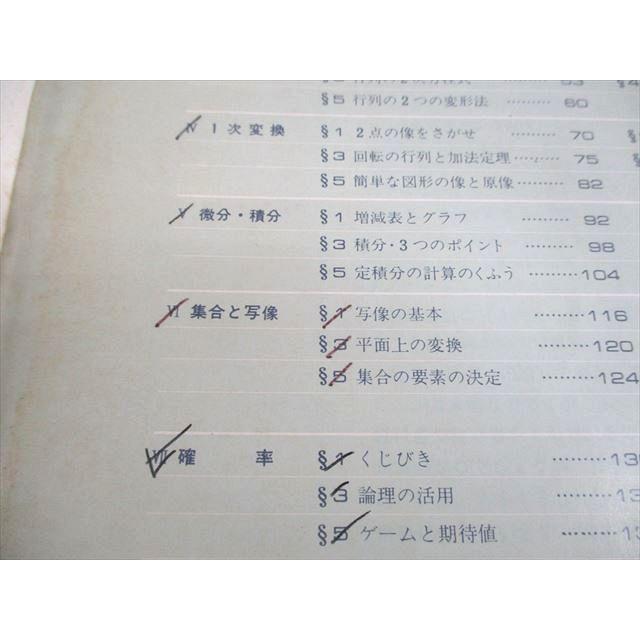 §5 行列の2つの変形法 ……… 60
Ⅳ 1次変換 §1 2点の像をさがせ ……… 70 §
§3 回転の行列と加法定理 ……… 75 §
§5 簡単な図形の像と原像 ……… 82
Ⅴ 微分・積分 §1 増減表とグラフ ……… 92
§3 積分・3つのポイント ……… 98
§5 定積分の計算のくふう ……… 104
Ⅵ 集合と写像 §1 写像の基本 ……… 116
§3 平面上の変換 ……… 120
§5 集合の要素の決定 ……… 124
Ⅶ 確率 §1 くじびき ……… 13
§3 論理の活用 ……… 13
§5 ゲームと期待値 ……… 13